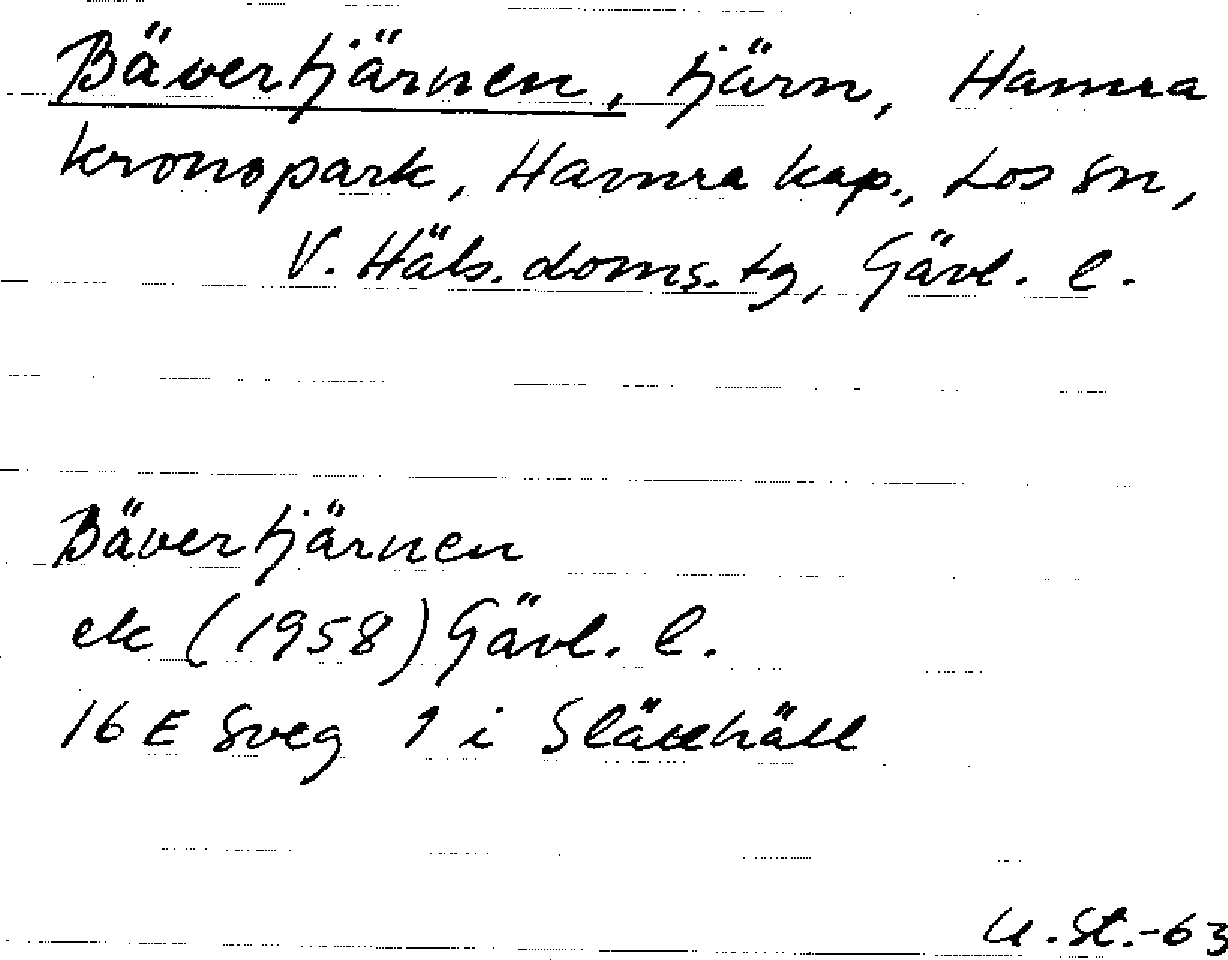 Bävertjärnen, tjärn, Hamra
kronopark, Hamra kap., Los sn,
V. Häls. doms. tg, Gävl. l.
Bävertjärnen
ek (1958) Gävl. l.
16 E Sveg 1 i Slättehäll
U. St.-63